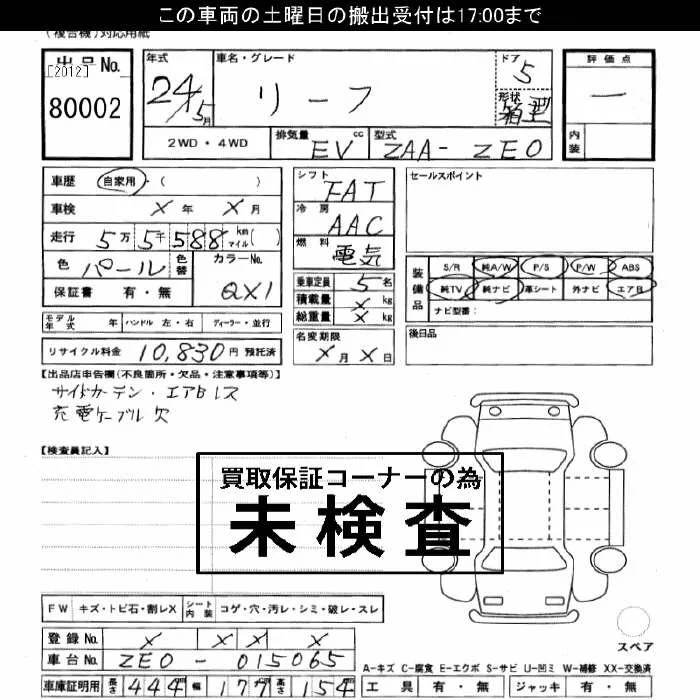 この車両の土曜日の搬出受付は17:00まで
(複合機)対応用紙
出品No. [2012] 年式 車名・グレード ドア 評価点
80002 24/5月 リーフ 5 形状 箱型 一
2WD・4WD 排気量 EV cc 型式 ZAA-ZE0 内装
車歴 自家用・( )
車検 X年 X月
走行 5万5千588 km マイル( )
色 パール 色替 カラーNo. QX1
保証書 有・無
モデル年式 年 ハンドル 左・右 ディーラー・並行
リサイクル料金 10,830円 預託済
シフト FAT
冷房 AAC
燃料 電気
乗車定員 5名
積載量 X kg
総重量 X kg
名変期限
X月X日
セールスポイント
装備品 S/R 純A/W P/S P/W ABS
純TV 純ナビ 革シート 外ナビ エアB
ナビ型番:
後日品
【出品店申告欄(不良箇所・欠品・注意事項等)】
サイドカーテン・エアBレス
充電ケーブル欠
【検査員記入】
買取保証コーナーの為
未検査
FW キズ・トビ石・割レX シート内装 コゲ・穴・汚レ・シミ・破レ・スレ
スペア
登録No. X X X X
車台No. ZE0-015065
A-キズ C-腐食 E-エクボ S-サビ U-凹ミ W-補修 XX-交換済
車庫証明用 長さ 444m 幅 177 高さ 154m 工具 有・無 ジャッキ 有・無